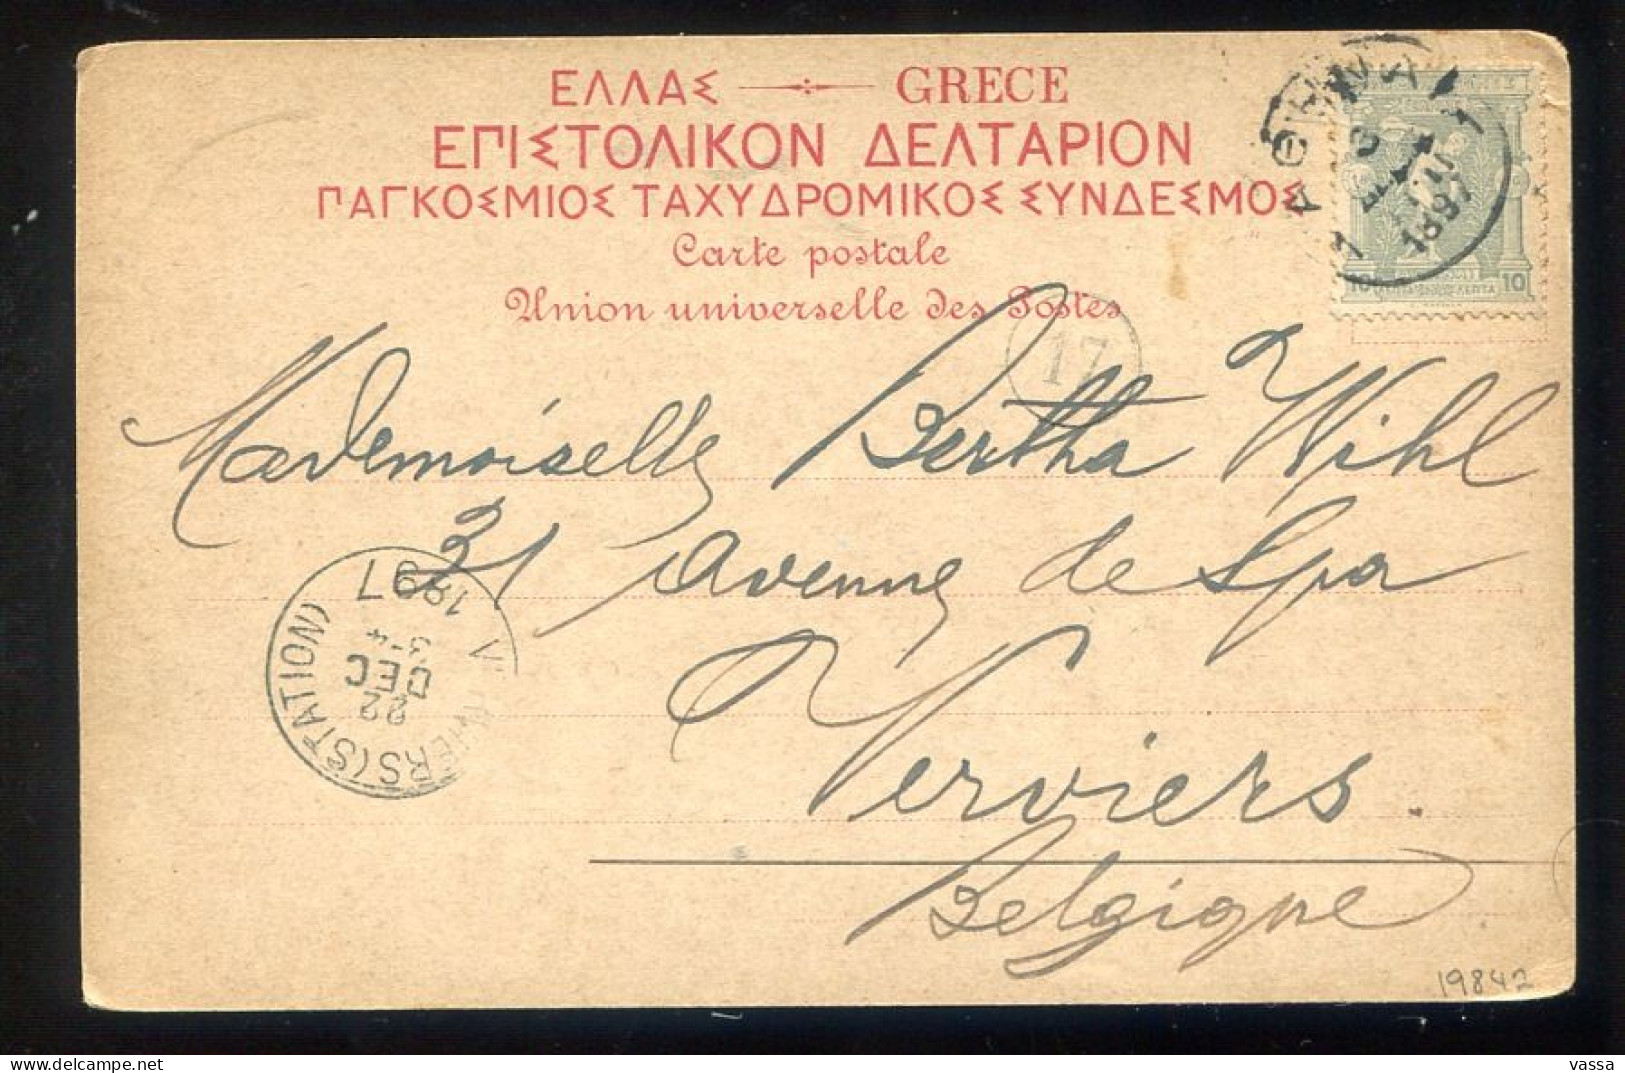 ΕΛΛΑΣ GRECE
ΕΠΙΣΤΟΛΙΚΟΝ ΔΕΛΤΑΡΙΟΝ
ΠΑΓΚΟΣΜΙΟΣ ΤΑΧΥΔΡΟΜΙΚΟΣ ΣΥΝΔΕΣΜΟΣ
Carte postale
Union universelle des Postes
ΑΘΗΝΑΙ 1
ΔΕΚ
1897
10 ΛΕΠΤΑ 10
17
Mademoiselle Bertha Wihl
31 Avenue de Spa
Verviers.
Belgique
VERVIERS (STATION)
22
DEC
3-4
1897
19842
vassa